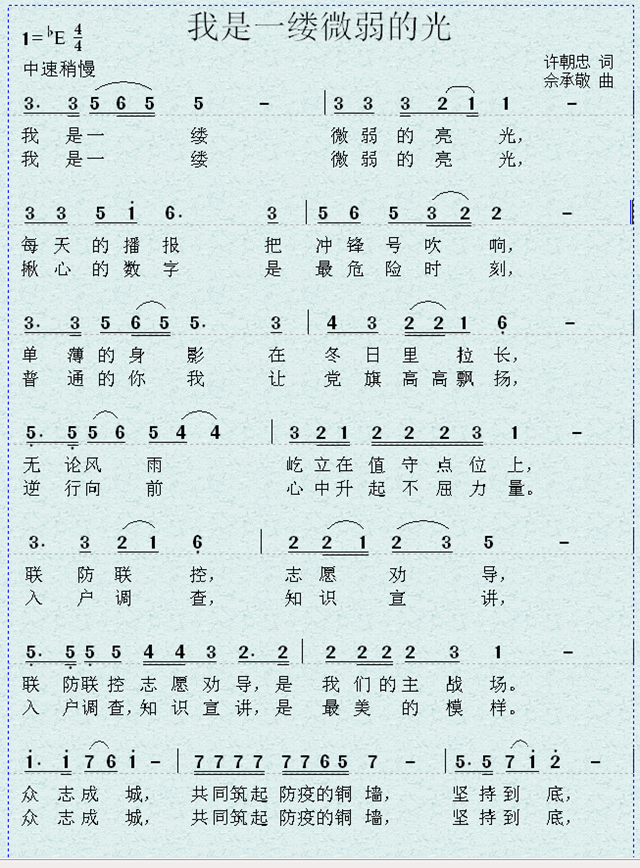 我是一缕微弱的光
1=♭E 4/4
中速稍慢
许朝忠 词
佘承敬 曲
3. 3 5 6 5 5 - | 3 3 3 2 1 1 -
我 是一 缕 微 弱 的 亮 光,
我 是一 缕 微 弱 的 亮 光,
3 3 5 i 6. 3 | 5 6 5 3 2 2 -
每 天 的 播 报 把 冲 锋 号 吹 响,
揪 心 的 数 字 是 最 危 险 时 刻,
3. 3 5 6 5 5. 3 | 4 3 2 2 1 6 -
单 薄 的 身 影 在 冬 日 里 拉 长,
普 通 的 你 我 让 党 旗 高 高 飘 扬,
5. 5 5 6 5 4 4 | 3 2 1 2 2 2 3 1 -
无 论风 雨 屹 立 在 值 守 点 位 上,
逆 行向 前 心 中 升 起 不 屈 力 量。
3. 3 2 1 6 | 2 2 1 2 3 5 -
联 防 联 控, 志 愿 劝 导,
入 户 调 查, 知 识 宣 讲,
5. 5 5 5 4 4 3 2. 2 | 2 2 2 2 3 1 -
联 防联 控 志 愿 劝 导, 是 我 们 的 主 战 场。
入 户调 查, 知 识 宣 讲, 是 最 美 的 模 样。
i. i 7 6 i - | 7 7 7 7 7 7 6 5 7 - | 5. 5 7 i 2 -
众 志 成 城, 共 同 筑 起 防 疫 的 铜 墙, 坚 持 到 底,
众 志 成 城, 共 同 筑 起 防 疫 的 铜 墙, 坚 持 到 底,